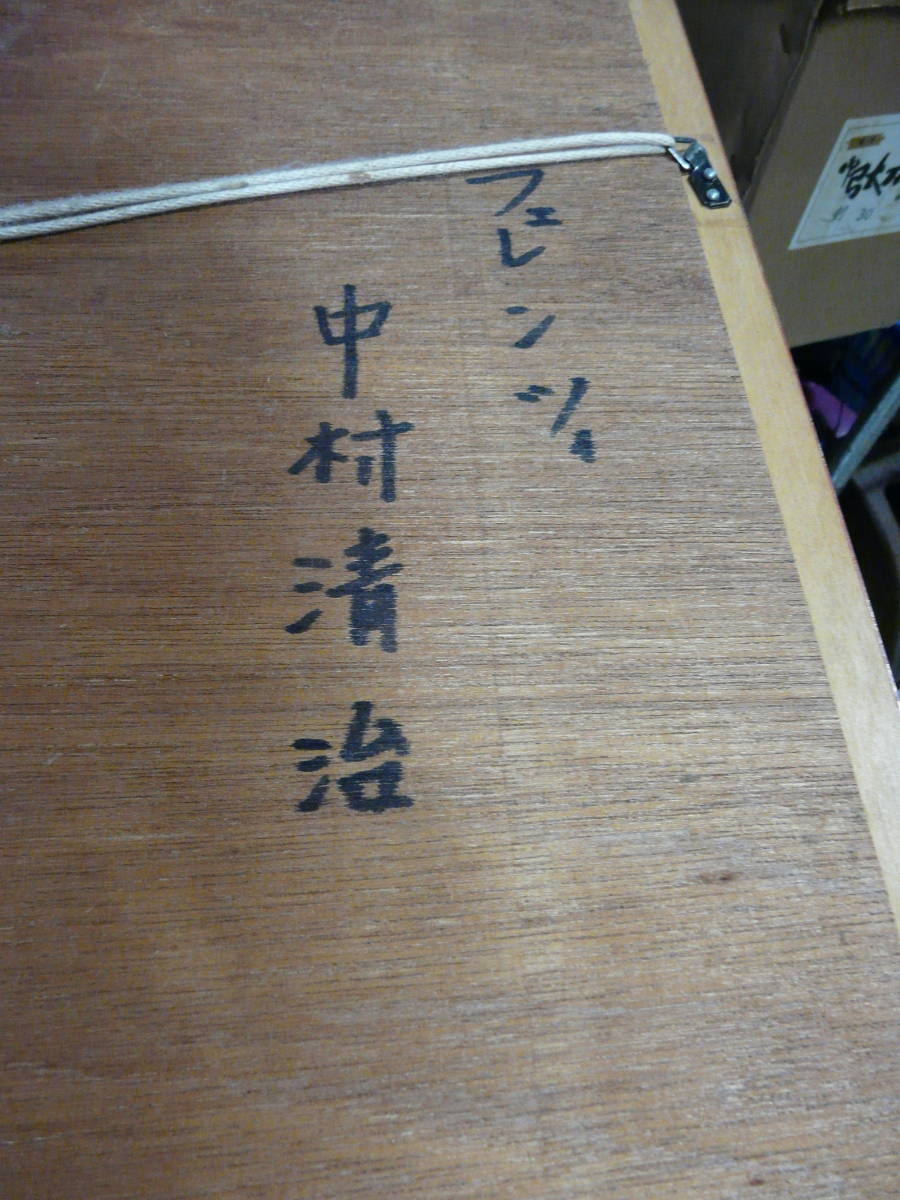 フェレンツェ
中村清治
30